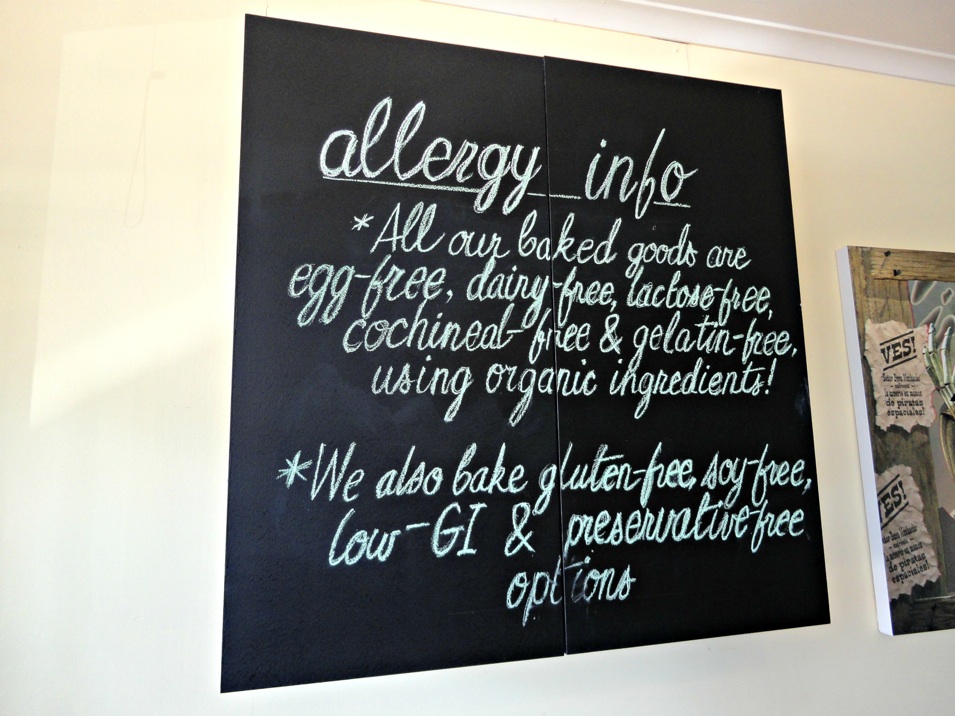 allergy info
*All our baked goods are
egg-free, dairy-free, lactose-free,
cochineal-free & gelatin-free,
using organic ingredients!
*We also bake gluten-free, soy-free,
low-GI & preservative-free
options
YES!
de piratas
espaciales!
YES!
de piratas
espaciales!